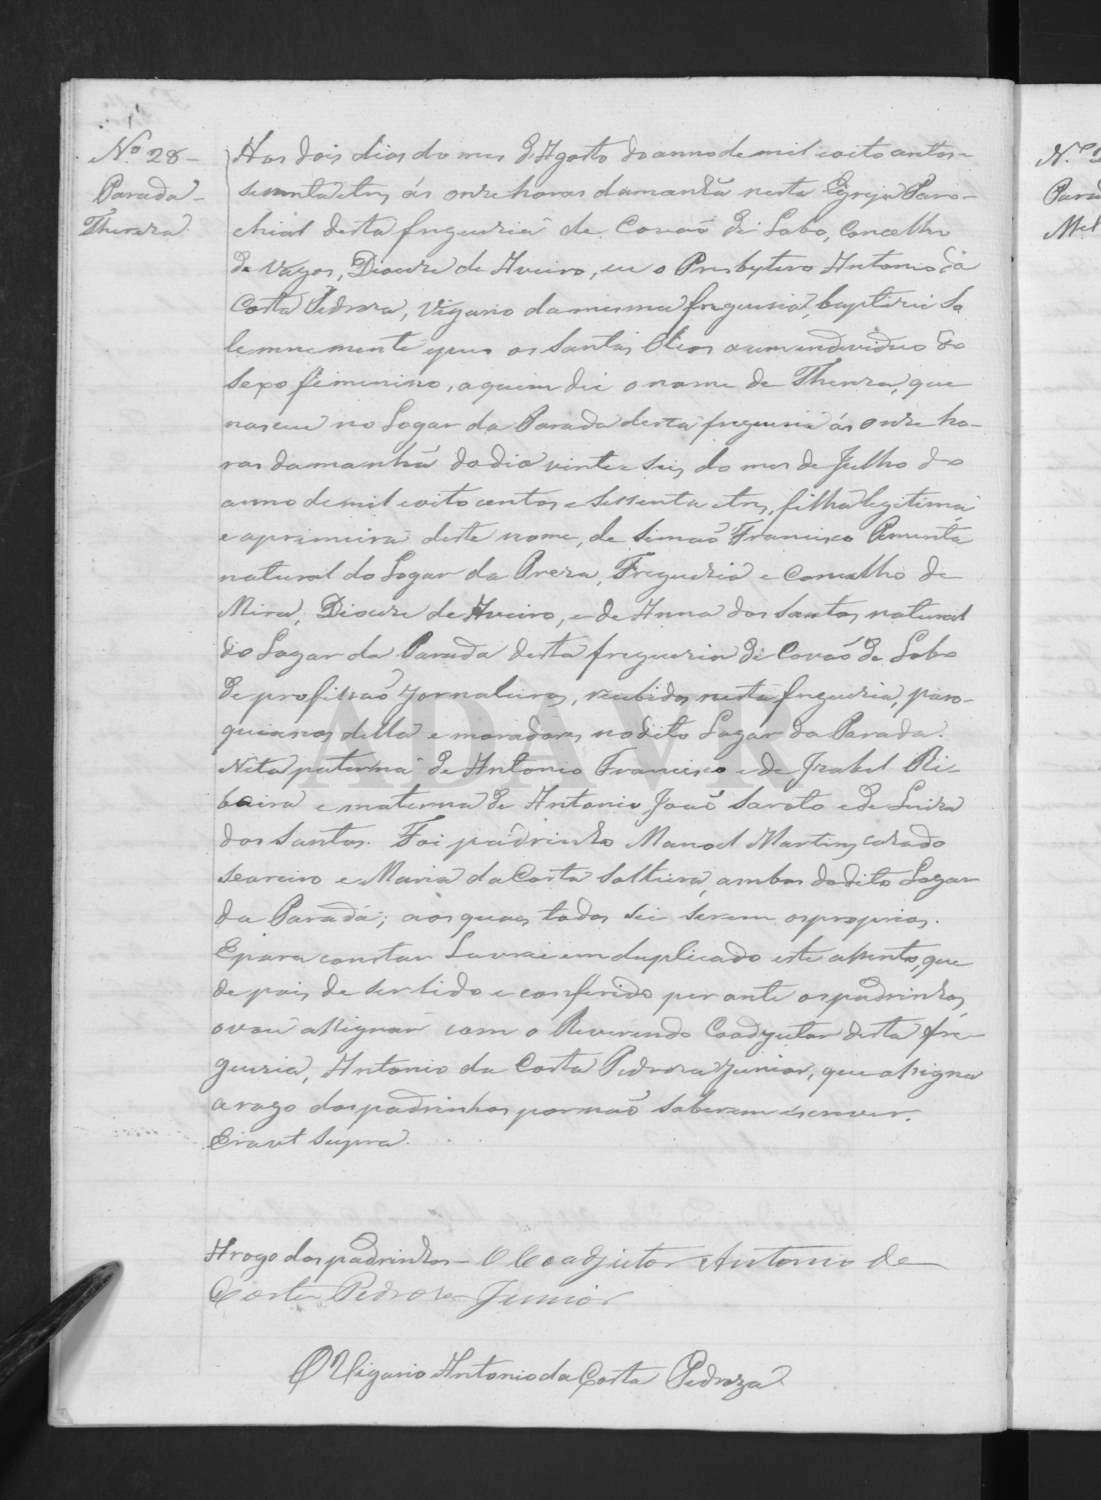 Nº 28-
Parada-
Thereza
Aos dois dias do mes d'Agosto do anno de mil oito centos
sessenta e tres ás onze horas da manhã nesta Egreja Paro-
chial desta freguezia de Covão de Lobo, Concelho
de Vagos, Diocese de Aveiro, eu o Presbytero Antonio da
Costa Pedroza, Vigario da mesma freguesia, baptizei So
lemnemente e puz os Santos Oleos a um individuo do
sexo feminino, a quem dei o nome de Thereza, que
nasceu no Logar da Parada desta freguesia ás onze ho-
ras da manhã do dia vinte e seis do mes de Julho do
anno de mil oito centos e sessenta e tres, filha legitima
e a primeira deste nome, de Simão Francisco Pimenta
natural do Logar da Preza, Freguezia e Concelho de
Mira, Diocese de Aveiro, e de Anna dos Santos natural
do Logar da Parada desta freguezia de Covão de Lobo
de profissão Jornaleiros, recebidos nesta freguezia, paro-
quianos della e moradores no dito Logar da Parada.
Neta paterna de Antonio Francisco e de Izabel Ri-
beira e materna de Antonio João Saroto e de Luiza
dos Santos. Foi padrinho Manoel Martins cazado
seareiro e Maria da Costa Solteira, ambos do dito Logar
da Parada, aos quaes todos sei serem os proprios.
E para constar Lavrei em duplicado este assento, que
depois de ser lido e conferido perante os padrinhos,
o vou assignar com o Reverendo Coadjutor desta fre-
guezia, Antonio da Costa Pedroza Junior, que assigna
a rogo dos padrinhos por não saberem escrever.
Era ut supra.
A rogo dos padrinhos - O Coadjutor Antonio da
Costa Pedroza Junior
O Vigario Antonio da Costa Pedroza
ADAVR
N.º 2
Para
Mel